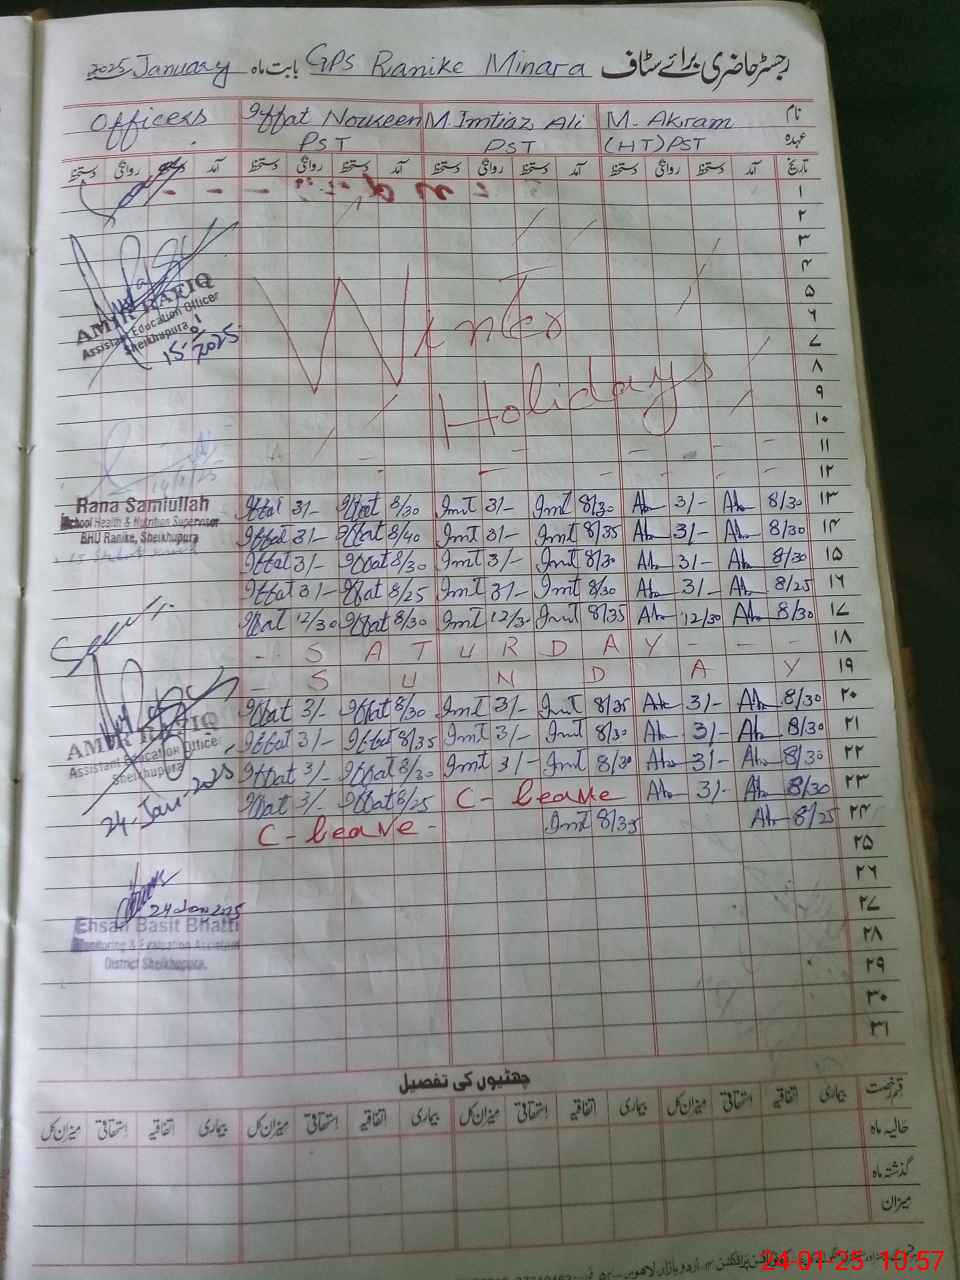 رجسٹر حاضری برائے سٹاف GPS Ranike Minara بابت ماہ January 2025
نام M. Akram M. Imtiaz Ali Iffat Nouseen Officers
عہدہ (HT) PST PST PST
تاریخ آمد دستخط روانگی دستخط آمد دستخط روانگی دستخط آمد دستخط روانگی دستخط آمد دستخط روانگی دستخط
۱
۲
۳
۴
۵
۶
۷
۸
۹
۱۰
۱۱
۱۲
Winter
Holidays
AMIR RAFIQ
Assistant Education Officer
Sheikhupura
15.01.2025
Rana Samiullah
School Health & Nutrition Supervisor
BHU Ranike, Sheikhupura
۱۳ 8/30 Ak 3/- Ak 8/30 Imt 3/- Imt 8/30 Iffat 3/- Iffat
۱۴ 8/30 Ak 3/- Ak 8/35 Imt 3/- Imt 8/40 Iffat 3/- Iffat
۱۵ 8/30 Ak 3/- Ak 8/30 Imt 3/- Imt 8/30 Iffat 3/- Iffat
۱۶ 8/25 Ak 3/- Ak 8/30 Imt 3/- Imt 8/25 Iffat 3/- Iffat
۱۷ 8/30 Ak 12/30 Ak 8/35 Imt 12/30 Imt 8/30 Iffat 12/30 Iffat
۱۸ SATURDAY
۱۹ SUNDAY
۲۰ 8/30 Ak 3/- Ak 8/35 Imt 3/- Imt 8/30 Iffat 3/- Iffat
۲۱ 8/30 Ak 3/- Ak 8/30 Imt 3/- Imt 8/35 Iffat 3/- Iffat
۲۲ 8/30 Ak 3/- Ak 8/30 Imt 3/- Imt 8/30 Iffat 3/- Iffat
۲۳ 8/30 Ak 3/- Ak C- leave 8/25 Iffat 3/- Iffat
۲۴ 8/25 Ak 8/35 Imt C- leave
۲۵
۲۶
۲۷
۲۸
۲۹
۳۰
۳۱
AMIR RAFIQ
Assistant Education Officer
Sheikhupura
24-Jan-2025
24 Jan 2025
Ehsan Basit Bhatti
Monitoring & Evaluation Assistant
District Sheikhupura.
چھٹیوں کی تفصیل
قسم رخصت بیماری اتفاقیہ استحقاقی میزان کل بیماری اتفاقیہ استحقاقی میزان کل بیماری اتفاقیہ استحقاقی میزان کل بیماری اتفاقیہ استحقاقی میزان کل
حالیہ ماہ
گذشتہ ماہ
میزان
اردو بازار لاہور
24-01-25 10:57